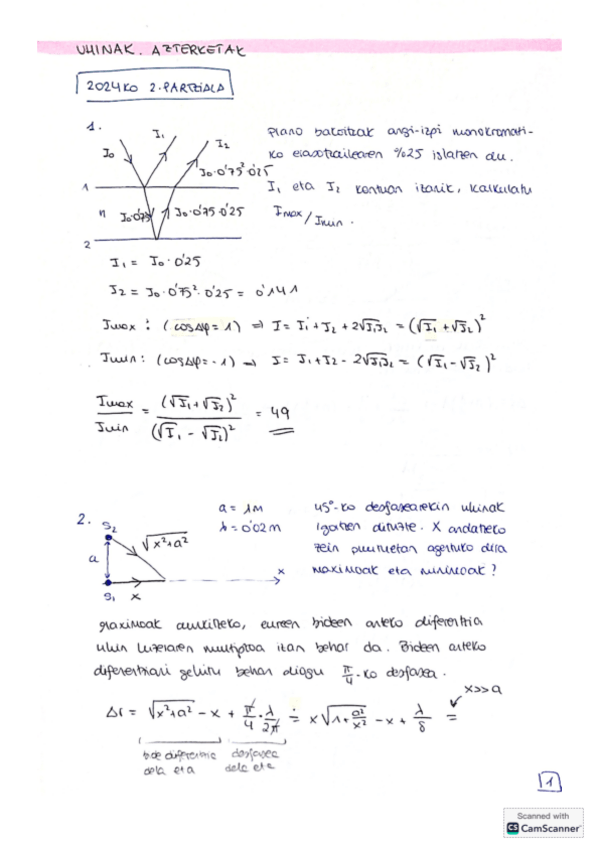 UHINAK. AZTERKETAK
2024KO 2. PARTZIALA
1.
I₀ I₁ I₂
I₀·0'75²·0'25
1
n I₀·0'75 I₀·0'75·0'25
2
Plano bakoitzak argi-izpi monokromati-
ko erasotzailearen %25 islatzen du.
I₁ eta I₂ kontuan izanik, kalkulatu
Imax/Imin.
I₁ = I₀·0'25
I₂ = I₀·0'75²·0'25 = 0'141
Imax : (cosΔφ = 1) ⇒ I = I₁ + I₂ + 2√I₁I₂ = (√I₁ + √I₂)²
Imin : (cosΔφ = -1) ⇒ I = I₁ + I₂ - 2√I₁I₂ = (√I₁ - √I₂)²
Imax/Imin = (√I₁ + √I₂)² / (√I₁ - √I₂)² = 49
2.
S₂
√x²+a²
a
S₁ x
x
a = 1m
λ = 0'02 m
45°-ko desfasearekin uhinak
igortzen dituzte. X ardatzeko
zein puntuetan agertuko dira
maximoak eta minimoak?
Maximoak aurkitzeko, euren bideen arteko diferentzia
uhin luzeraren multiploa izan behar da. Bideen arteko
diferentziari gehitu behar diogu π/4-ko desfasea.
x>>a
Δr = √x²+a² - x + π/4 · λ/2π = x√1+a²/x² - x + λ/8 =
bide diferentzia desfasea
dela eta dela eta
1
Scanned with
CS CamScanner